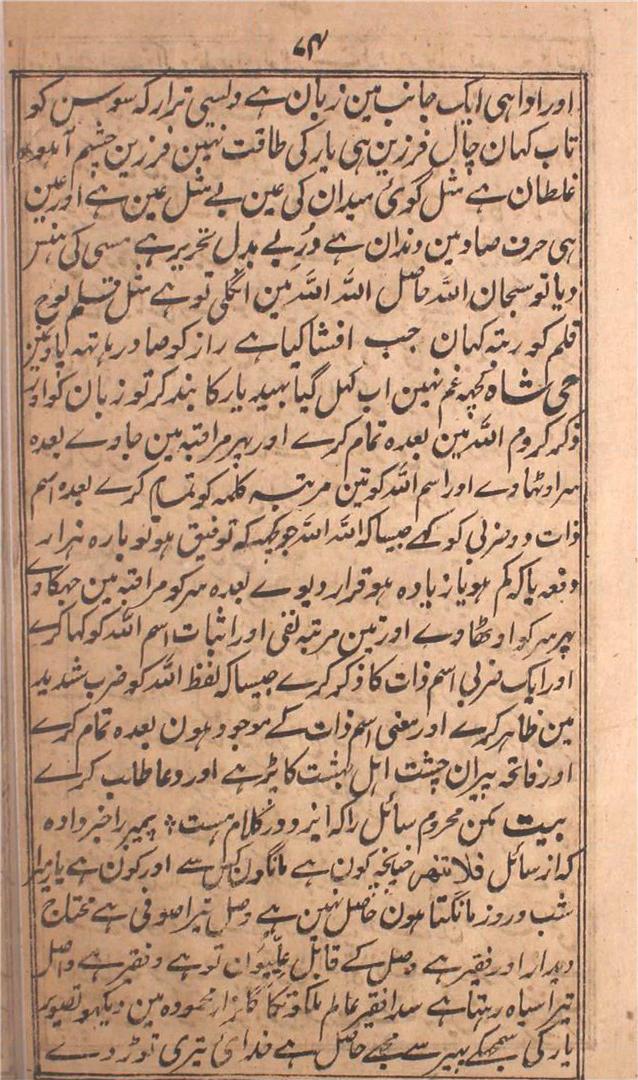 ۷۴
اور اداہی ایک جانب مین زبان ہے ولیسی ترار کہ سوسن کو
تاب کہان چال فرزین ہی یار کی طاقت نہین فرزین چشم آہو
غلطان ہے مثل گوئ میدان کی عین بے مثل عین ہے اور عین
ہی حرف صاد مین دندان ہے دُرِ بے بدل تحریر ہے مسی کی ہنس
دیا تو سبحان اللہ حاصل اللہ اللہ مین انگلی تو ہے مثل قلم لوح
قلم کو رتبہ کہان جب افشا کیا ہے راز کو صادر ہاتہہ پاؤ نین
حی شاہ کچہہ غم نہین اب کہل گیا بہید یار کا بند کر تو زبان کو اور
ذکر کروم اللہ مین بعدہ تمام کرے اور پہر مراقبہ مین جاوے بعدہ
سر اوٹہاوے اور اسم اللہ کو تین مرتبہ کلمہ کو تمام کرے بعدہ اسم
ذات دو ضربی کو کہے جیسا کہ اللہ اللہ جو کچہہ کہ توفیق ہو تو بارہ ہزار
دفعہ یا کہ کم ہو یا زیادہ ہو قرار دیوے بعدہ سر کو مراقبہ مین جہکاوے
پہر سر کو اوٹہاوے اور تین مرتبہ نفی اور اثبات اسم اللہ کو کہا کرے
اور ایک ضربی اسم ذات کا ذکر کرے جیسا کہ لفظ اللہ کو ضرب شدید
مین ظاہر کرے اور معنی اسم ذات کے موجود ہون بعدہ تمام کرے
اور فاتحہ پیران چشت اہل بہشت کا پڑہے اور دعا طلب کرے
بیت مکن محروم سائل را کہ ایزد در کلام ہست ؞ پیمبر را خبر دادہ
کہ از سائل فلا تنہر چنانچہ کون ہے مانگون کس سے اور کون ہے یار میرا
شب و روز مانگتا ہون حاصل نہین ہے وصل تیرا صوفی ہے محتاج
دیدار اور فقیر ہے وصل کے قابل تو ہے و فقیر ہے واصل
تیرا سیاہ رہتا ہے سدا فقیر عالم ملکوت کا گلزار محمودہ مین دیکہو تصویر
یار کی سمجہہ کے بہیر سے مجہے حاصل ہے خدائ تیری توڑ دے